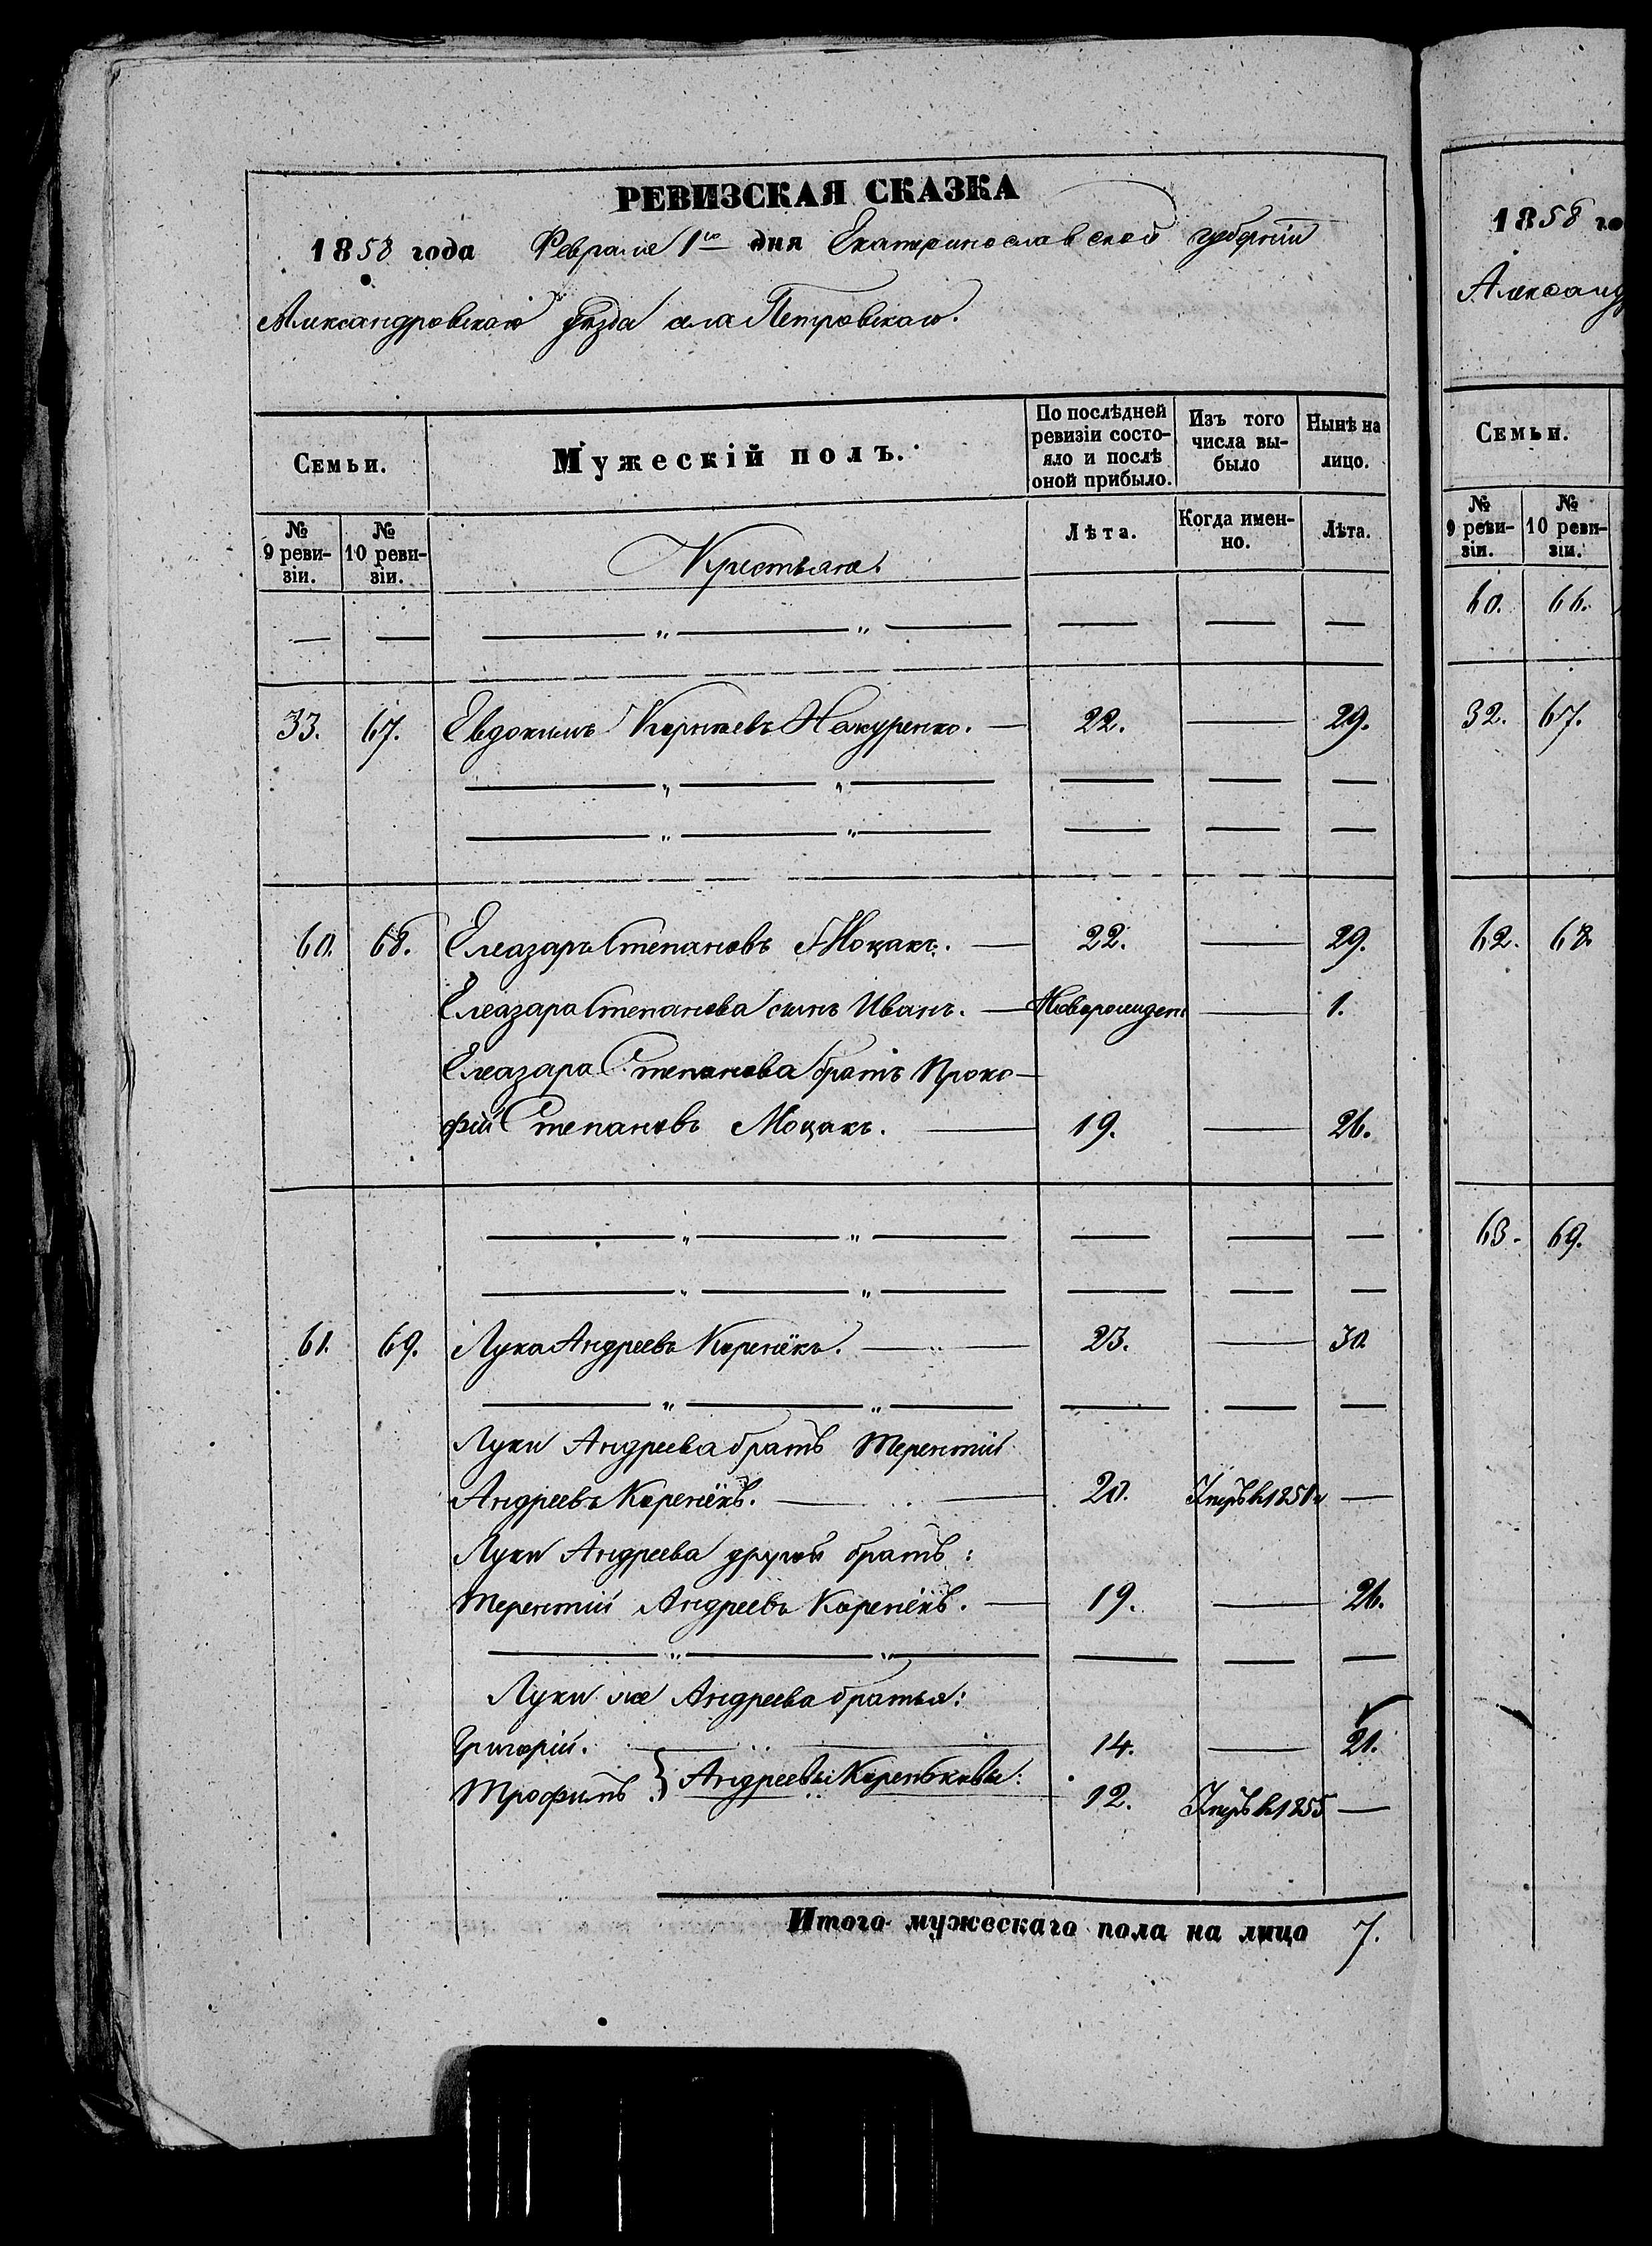 РЕВИЗСКАЯ СКАЗКА
1858 года Февраля 1го дня Екатеринославской губерніи
Александровскаго уѣзда села Петровскаго.
Семьи.
Мужескій полъ.
По послѣдней ревизіи состояло и послѣ оной прибыло.
Изъ того числа выбыло
Нынѣ на лицо.
№ 9 ревизіи.
№ 10 ревизіи.
Крестьяне.
Лѣта.
Когда именно.
Лѣта.
33. 67. Евдокимъ 22. 29.
60. 68. Елеазаръ Степановъ Моцакъ. 22. 29.
Елеазара Степанова сынъ Иванъ. Новорожден 1.
Елеазара Степанова братъ Проко-
фій Степановъ Моцакъ. 19. 26.
61. 69. Лука Андреевъ Коренёкъ. 23. 30
Луки Андреева братъ Терентій
Андреевъ Коренёкъ. 20. —
Луки Андреева другой братъ:
Терентій Андреевъ Коренёкъ. 19. 26.
Луки же Андреева братья:
Григорій. 14. 21.
Трофимъ. } Андреевы Кореньковы: 12. 1855 —
Итого мужескаго пола на лицо 7.
1858 го
Александ
Семьи.
№ 9 ревизіи.
№ 10 ревизіи.
60. 66.
32. 67.
62. 68
63. 69.